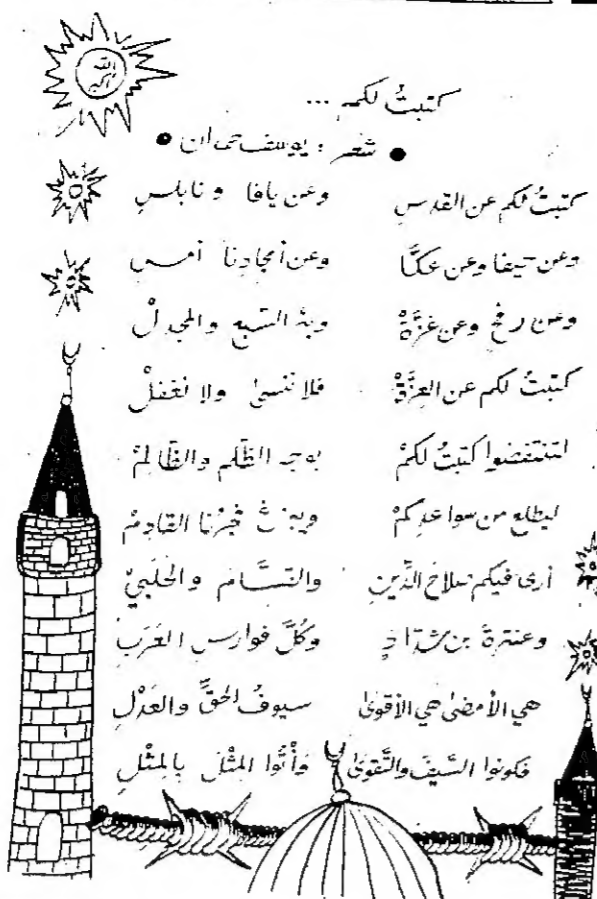 الله أكبر
كتبتُ لكم ...
● شعر : يوسف حمدان ●
كتبتُ لكم عن القدسِ وعن يافا ونابلسِ
وعن حيفا وعن عكّا وعن أمجادِنا أمسِ
وعن رفحٍ وعن غزّةْ وبئرِ السّبعِ والمجدلْ
كتبتُ لكم عن العِزّةْ فلا ننسى ولا نغفلْ
لتنتفضوا كتبتُ لكمْ بوجهِ الظّلمِ والظّالِمْ
ليطلع من سواعدِكمْ ويبزغَ فجرُنا القادِمْ
أرى فيكم صلاحَ الدّينِ والقسَّامَ والحَلَبيّْ
وعنترةَ بن شدّادٍ وكُلَّ فوارسِ العَرَبِ
هي الأمضى هي الأقوى سيوفُ الحقِّ والعَدْلِ
فكونوا السّيفَ والتّقوى وأْتُوا المِثْلَ بالمِثْلِ